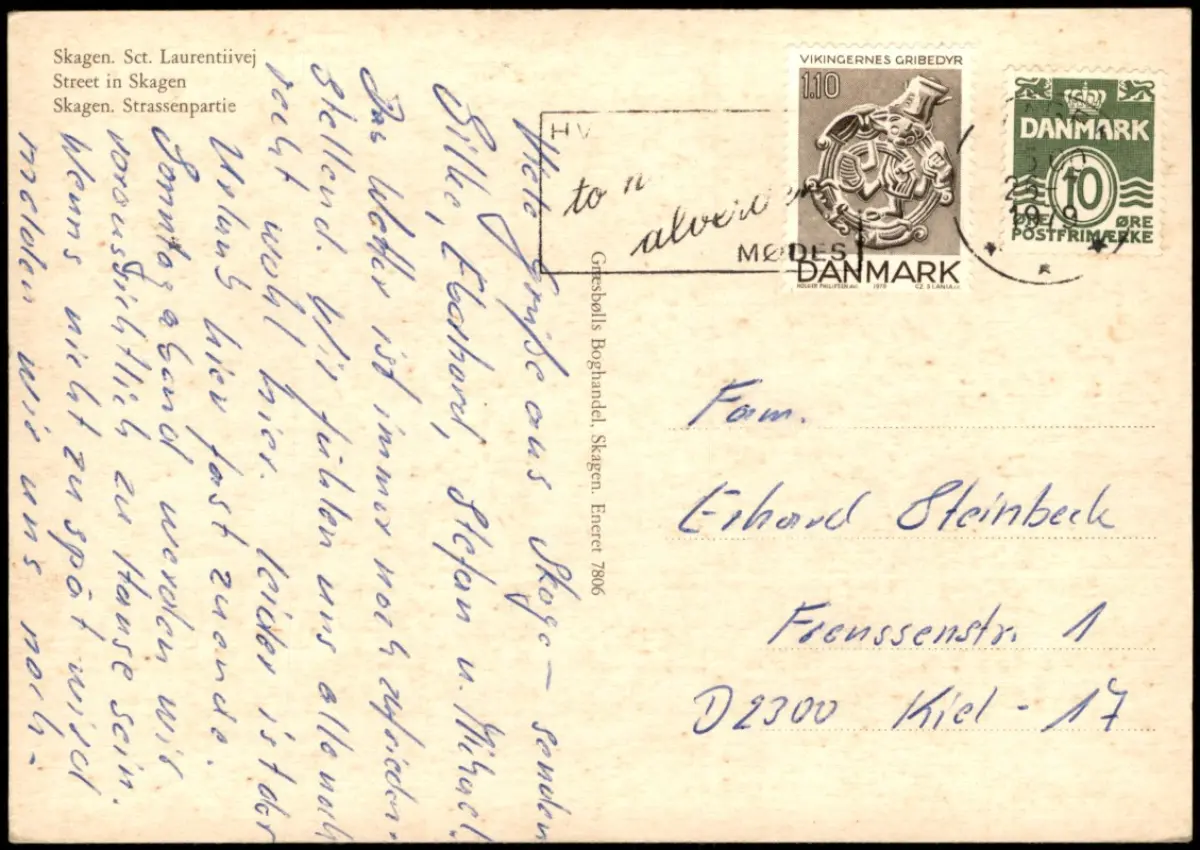 Skagen. Sct. Laurentiivej
Street in Skagen
Skagen. Strassenpartie
Viele Grüße aus Skage – senden
Silke, Eberhard, Stefan u. Mihael.
Das Wetter ist immer noch zufrieden-
stellend. Wir fühlen uns alle noch
recht wohl hier. Leider ist der
Urlaub hier fast zuende.
Sonntag abend werden wir
voraussichtlich zu Hause sein.
Wenns nicht zu spät wird
melden wir uns noch –
Græsbølls Boghandel, Skagen. Eneret 7806
HV
to
alverden
MØDES
VIKINGERNES GRIBEDYR
1.10
DANMARK
1979
DANMARK
10
ØRE ØRE
POSTFRIMÆRKE
1979
Fam.
Erhard Steinbeck
Frenssenstr. 1
D2300 Kiel - 17